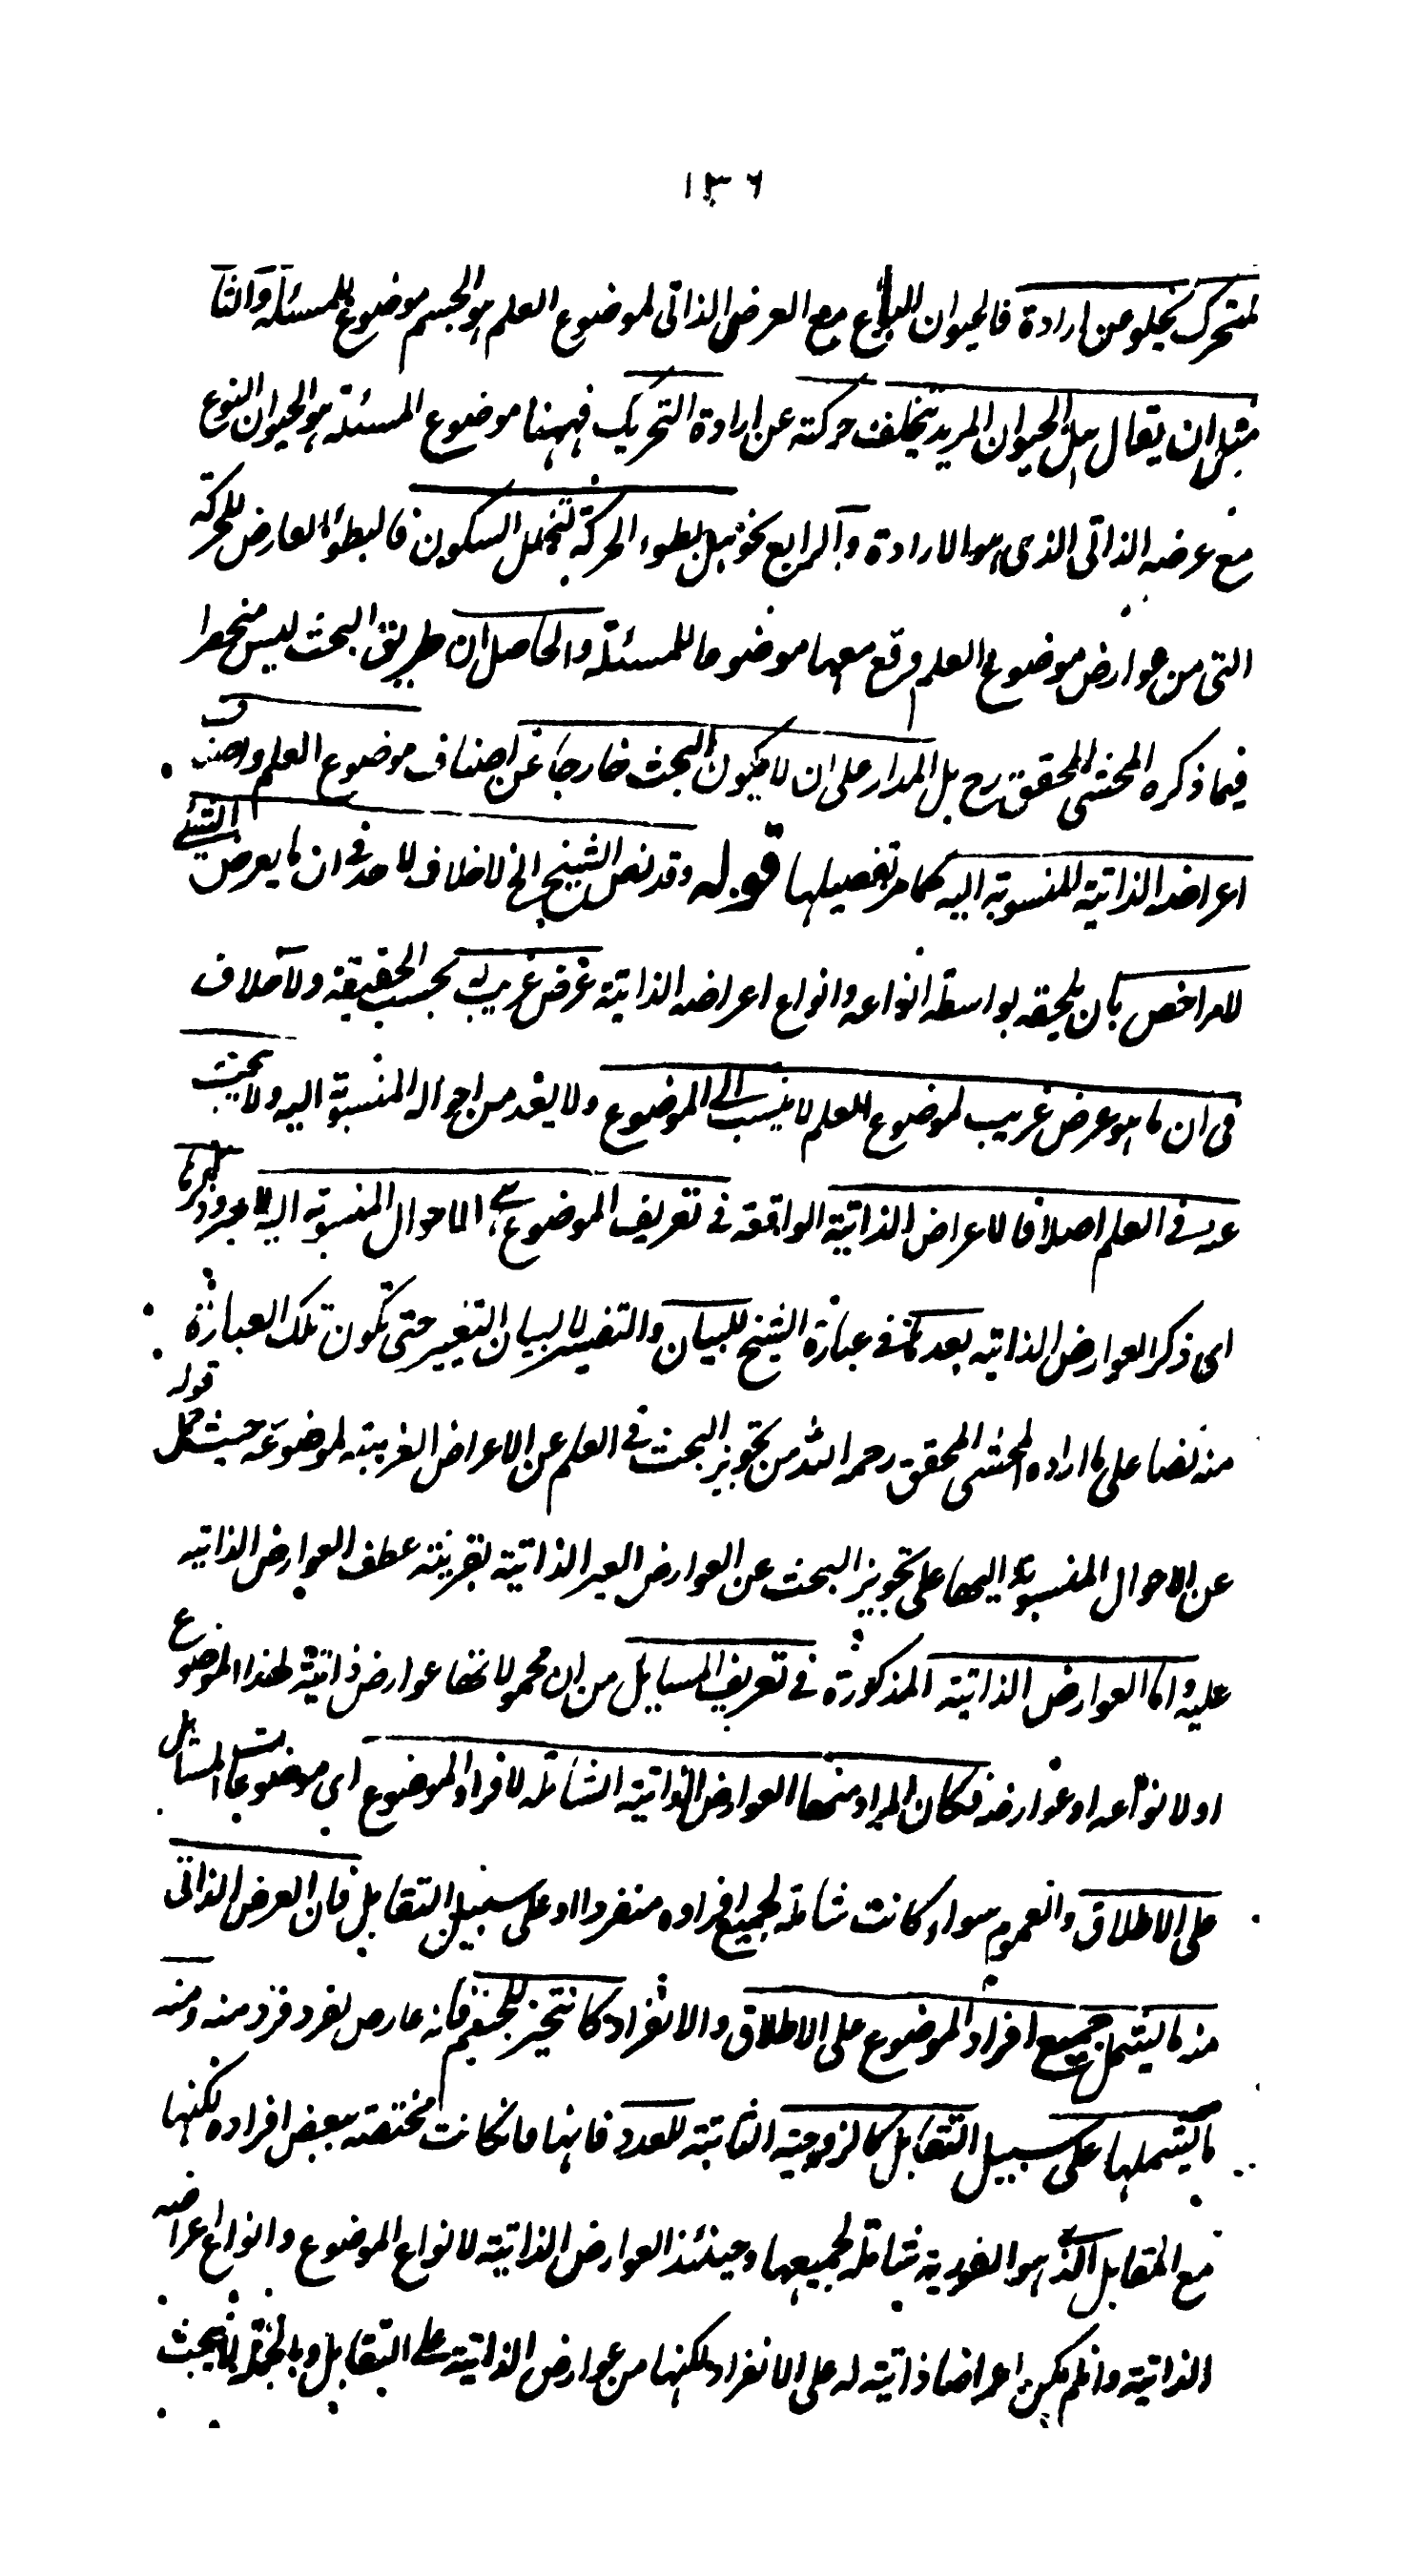 ١٣٦
لمتحرك يخلو عن ارادة فالحيوان النوع مع العرض الذاتى لموضوع العلم هو الجسم موضوع للمسئلة والثا
مثل ان يقال هل الحيوان المريد يتخلف حركته عن ارادة التحريك فههنا موضوع المسئلة هو الحيوان النوع
مع عرضه الذاتى الذى هو الارادة والرابع نحو هل بطوء الحركة لتخلل السكون فالبطوء العارض للحركة
التى من عوارض موضوع العلم وقع معها موضوعا للمسئلة والحاصل ان طريق البحث ليس منحصرا
فيما ذكره المحشى المحقق رح بل المدار على ان لا يكون البحث خارجا عن اصناف موضوع العلم واصناف
اعراضه الذاتية المنسوبة اليه كما مر تفصيلها قوله وقد نص الشيخ الخ لا خلاف لاحد فى ان ما يعرض الشئ
لامر اخص بان يلحقه بواسطة انواعه وانواع اعراضه الذاتية عرض غريب بحسب الحقيقة ولا خلاف
فى ان ما هو عرض غريب لموضوع العلم لا ينسب الى الموضوع ولا يعد من احواله المنسوبة اليه ولا يبحث
عنه فى العلم اصلا فالاعراض الذاتية الواقعة فى تعريف الموضوع هى الاحوال المنسوبة اليه لا غير وذكرها
اى ذكر العوارض الذاتية بعدها فى عبارة الشيخ للبيان والتفسير لا لبيان التغيير حتى تكون تلك العبارة
منه نصا على ما اراده المحشى المحقق رحمه الله من تجويز البحث فى العلم عن الاعراض الغريبة لموضوعه حيث حمل قوله
عن الاحوال المنسوبة اليها على تجويز البحث عن العوارض الغير الذاتية بقرينة عطف العوارض الذاتية
عليه واما العوارض الذاتية المذكورة فى تعريف المسايل من ان محمولاتها عوارض ذاتية لهذا الموضوع
او لانواعه او عوارضه فكان المراد منها العوارض الذاتية الشاملة لافراد الموضوع اى موضوعات المسائل
على الاطلاق والعموم سواء كانت شاملة لجميع افراده منفردا او على سبيل التقابل فان العرض الذاتى
منه ما يشمل جميع افراد الموضوع على الاطلاق والانفراد كالتحيز للجسم فانه عارض لفرد فرد منه ومنه
ما يشملها على سبيل التقابل كالزوجية الثابتة للعدد فانها وان كانت مختصة ببعض افراده لكنها
مع المقابل الذى هو الفردية شاملة لجميعها وحينئذ العوارض الذاتية لانواع الموضوع وانواع اعراضه
الذاتية وان لم يكن اعراضا ذاتية له على الانفراد لكنها من عوارض الذاتية على التقابل وبالجملة يبحث